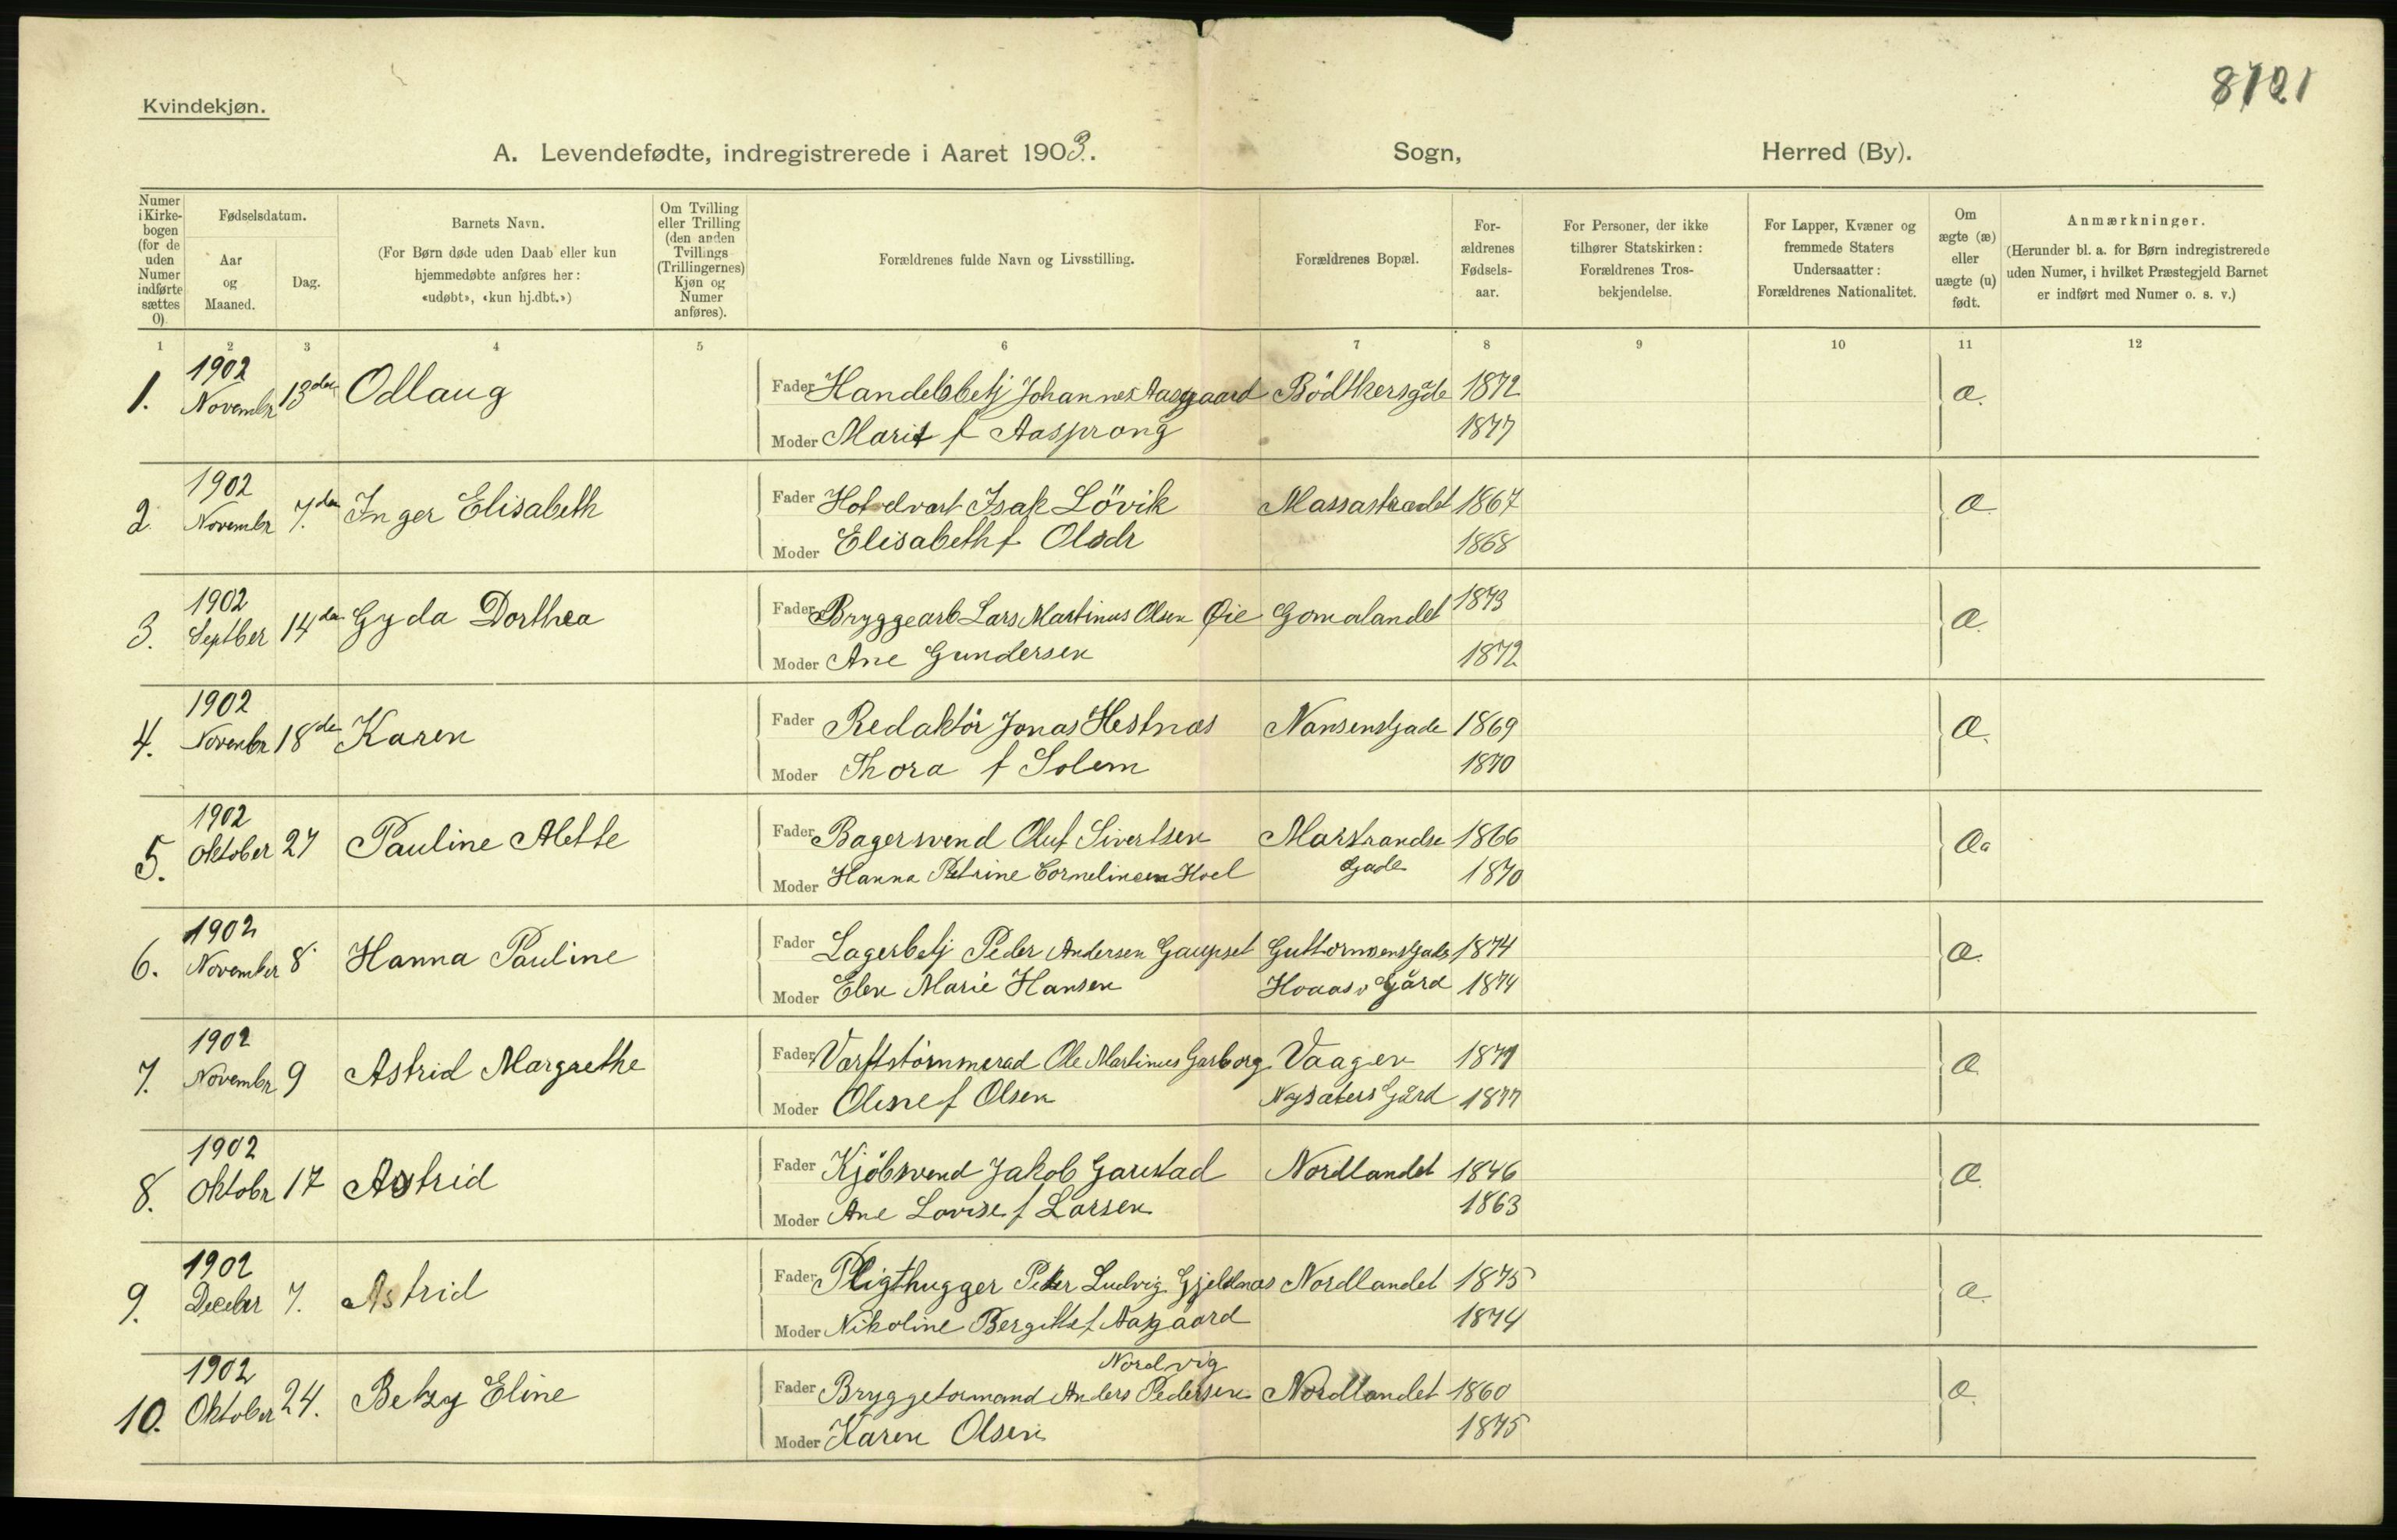 8121
Kvindekjøn.
A. Levendefødte, indregistrerede i Aaret 1903. Sogn, Herred (By).
Numer i Kirkebogen (for de uden Numer indførte sættes 0).
Fødselsdatum.
Aar og Maaned.
Dag.
Barnets Navn.
(For Børn døde uden Daab eller kun
hjemmedøbte anføres her:
«udøbt», «kun hj.dbt.»)
Om Tvilling
eller Trilling
(den anden
Tvillings
(Trillingernes)
Kjøn og
Numer
anføres).
Forældrenes fulde Navn og Livsstilling.
Forældrenes Bopæl.
For-
ældrenes
Fødsels-
aar.
For Personer, der ikke
tilhører Statskirken:
Forældrenes Tros-
bekjendelse.
For Lapper, Kvæner og
fremmede Staters
Undersaatter:
Forældrenes Nationalitet.
Om
ægte (æ)
eller
uægte (u)
født.
Anmærkninger.
(Herunder bl. a. for Børn indregistrerede
uden Numer, i hvilket Præstegjeld Barnet
er indført med Numer o. s. v.)
1 2 3 4 5 6 7 8 9 10 11 12
1902
1. Novembr 13de Odlaug Fader Handelsbetj Johannes Aasgaard Bödtkersgade 1872 æ.
Moder Marit f Aasprong 1877
1902
2. Novembr 7.de Inger Elisabeth Fader Isak Lövik Massastrædet 1867 æ
Moder Elisabeth f Olsdr 1868
1902
3. Septber 14de Gyda Dorthea Fader Bryggearb Lars Martinus Olsen Øie Gomalandet 1873 æ.
Moder Ane Gundersen 1872
1902
4. Novenbr 18de Karen Fader Redaktör Jonas Hestnæs NansensGade 1869 æ.
Moder Thora f Solem 1870
1902
5. Oktober 27 Pauline Alette Fader Bagersvend Oluf Sivertsen Marstrandse 1866 æ
Moder Hanna Petrine Hoel Gade 1870
1902
6. November 8 Hanna Pauline Fader Lagerbetj Peder Andersen Gaupset GuttormsensGade 1874 æ.
Moder Elen Marie Hansen Gård 1874
1902
7. Novembr 9 Astrid Margrethe Fader Varftstömmerad Ole Martinus Garborg Vaagen 1871 æ
Moder Oline f Olsen Gård 1877
1902
8. Oktobr 17 Astrid Fader Kjöbsvend Jakob Garstad Nordlandet 1846 æ.
Moder Ane Lovise f Larsen 1863
1902
9. Deceber 7. Astrid Fader Pligthugger Peder Ludvig Gjeldnæs Nordlandet 1875 æ.
Moder Nikoline Bergitte f Aasgaard 1874
1902 Nordvig
10. Oktober 24. Betzy Eline Fader Bryggeformand Anders Pedersen Nordlandet 1860 æ.
Moder Karen Olsen 1875